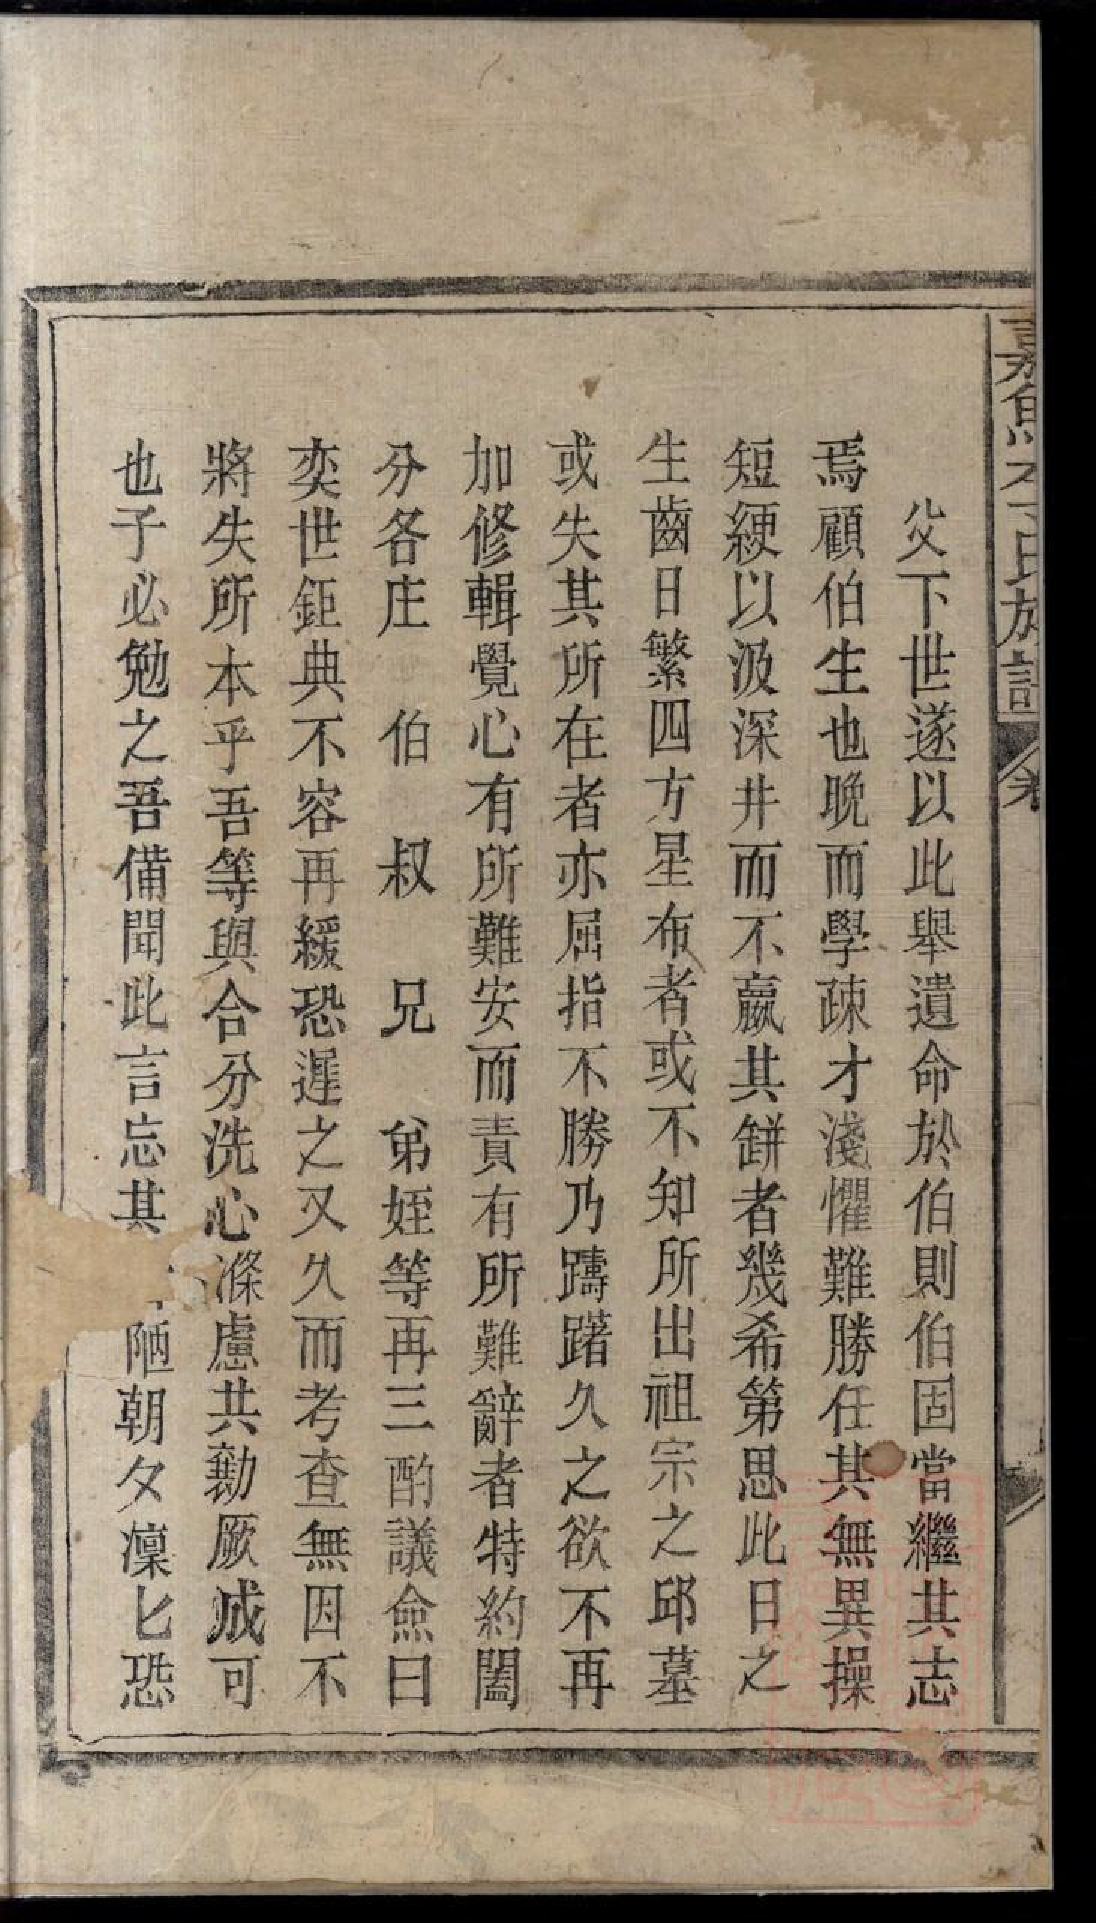 嘉魚李氏族譜 卷
父下世遂以此舉遺命於伯則伯固當繼其志
焉顧伯生也晚而學疎才淺懼難勝任其無異操
短綆以汲深井而不羸其缾者幾希第思此日之
生齒日繁四方星布者或不知所出祖宗之邱墓
或失其所在者亦屈指不勝乃躊躇久之欲不再
加修輯覺心有所難安而責有所難辭者特約闔
分各庄 伯 叔 兄 弟姪等再三酌議僉曰
奕世鉅典不容再緩恐遲之又久而考查無因不
將失所本乎吾等與合分洗心滌慮共勷厥成可
也子必勉之吾備聞此言忘其陋朝夕凜匕恐